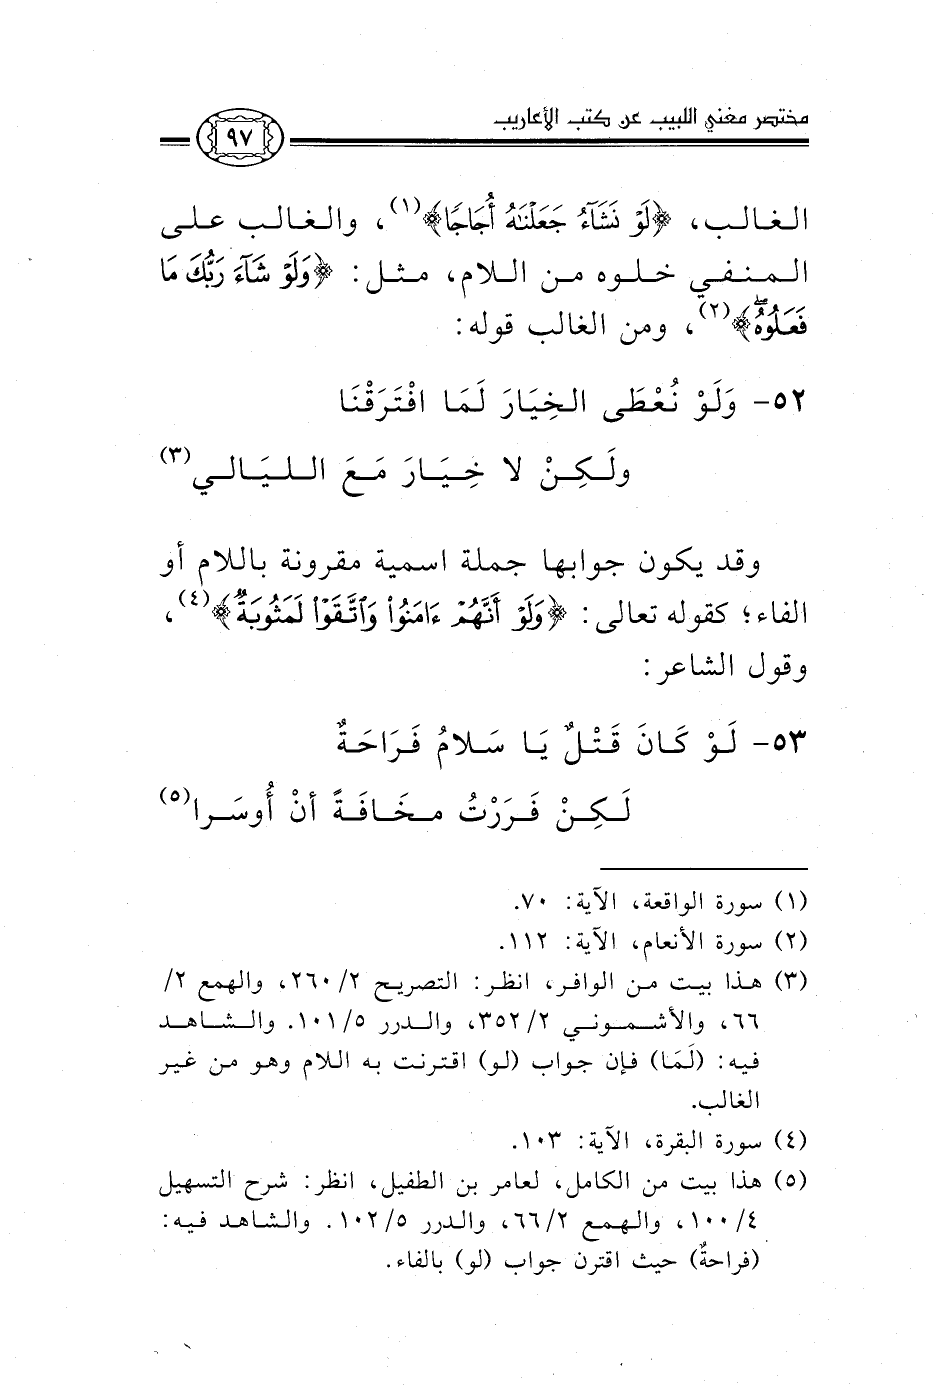 مختصر مغني اللبيب عن كتب الأعاريب
٩٧
الغالب، ﴿لَوْ نَشَآءُ جَعَلْنَٰهُ أُجَاجًا﴾(١)، والغالب على
المنفي خلوه من اللام، مثل: ﴿وَلَوْ شَآءَ رَبُّكَ مَا
فَعَلُوهُ﴾(٢)، ومن الغالب قوله:
٥٢- وَلَوْ نُعْطَى الخِيَارَ لَمَا افْتَرَقْنَا
ولَكِنْ لا خِيَارَ مَعَ الليَالي(٣)
وقد يكون جوابها جملة اسمية مقرونة باللام أو
الفاء؛ كقوله تعالى: ﴿وَلَوْ أَنَّهُمْ ءَامَنُوا۟ وَٱتَّقَوْا۟ لَمَثُوبَةٌ﴾(٤)،
وقول الشاعر:
٥٣- لَوْ كَانَ قَتْلٌ يَا سَلامُ فَرَاحَةٌ
لَكِنْ فَرَرْتُ مخَافَةً أنْ أُوسَرا(٥)
(١) سورة الواقعة، الآية: ٧٠.
(٢) سورة الأنعام، الآية: ١١٢.
(٣) هذا بيت من الوافر، انظر: التصريح ٢/ ٢٦٠، والهمع ٢/
٦٦، والأشموني ٢/ ٣٥٢، والدرر ٥/ ١٠١. والشاهد
فيه: (لَمَا) فإن جواب (لو) اقترنت به اللام وهو من غير
الغالب.
(٤) سورة البقرة، الآية: ١٠٣.
(٥) هذا بيت من الكامل، لعامر بن الطفيل، انظر: شرح التسهيل
٤/ ١٠٠، والهمع ٢/ ٦٦، والدرر ٥/ ١٠٢. والشاهد فيه:
(فراحةٌ) حيث اقترن جواب (لو) بالفاء.